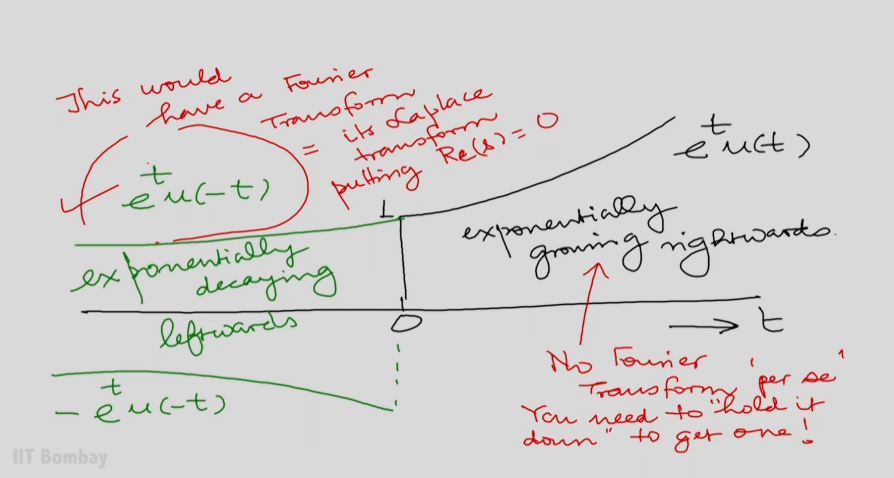 This would
have a Fourier
Transform
= its Laplace
transform
putting Re(s) = 0
e^t u(-t)
1
e^t u(t)
exponentially
decaying
leftwards
exponentially
growing rightwards.
0
t
- e^t u(-t)
No Fourier
Transform 'per se'
You need to "hold it
down" to get one!
IIT Bombay